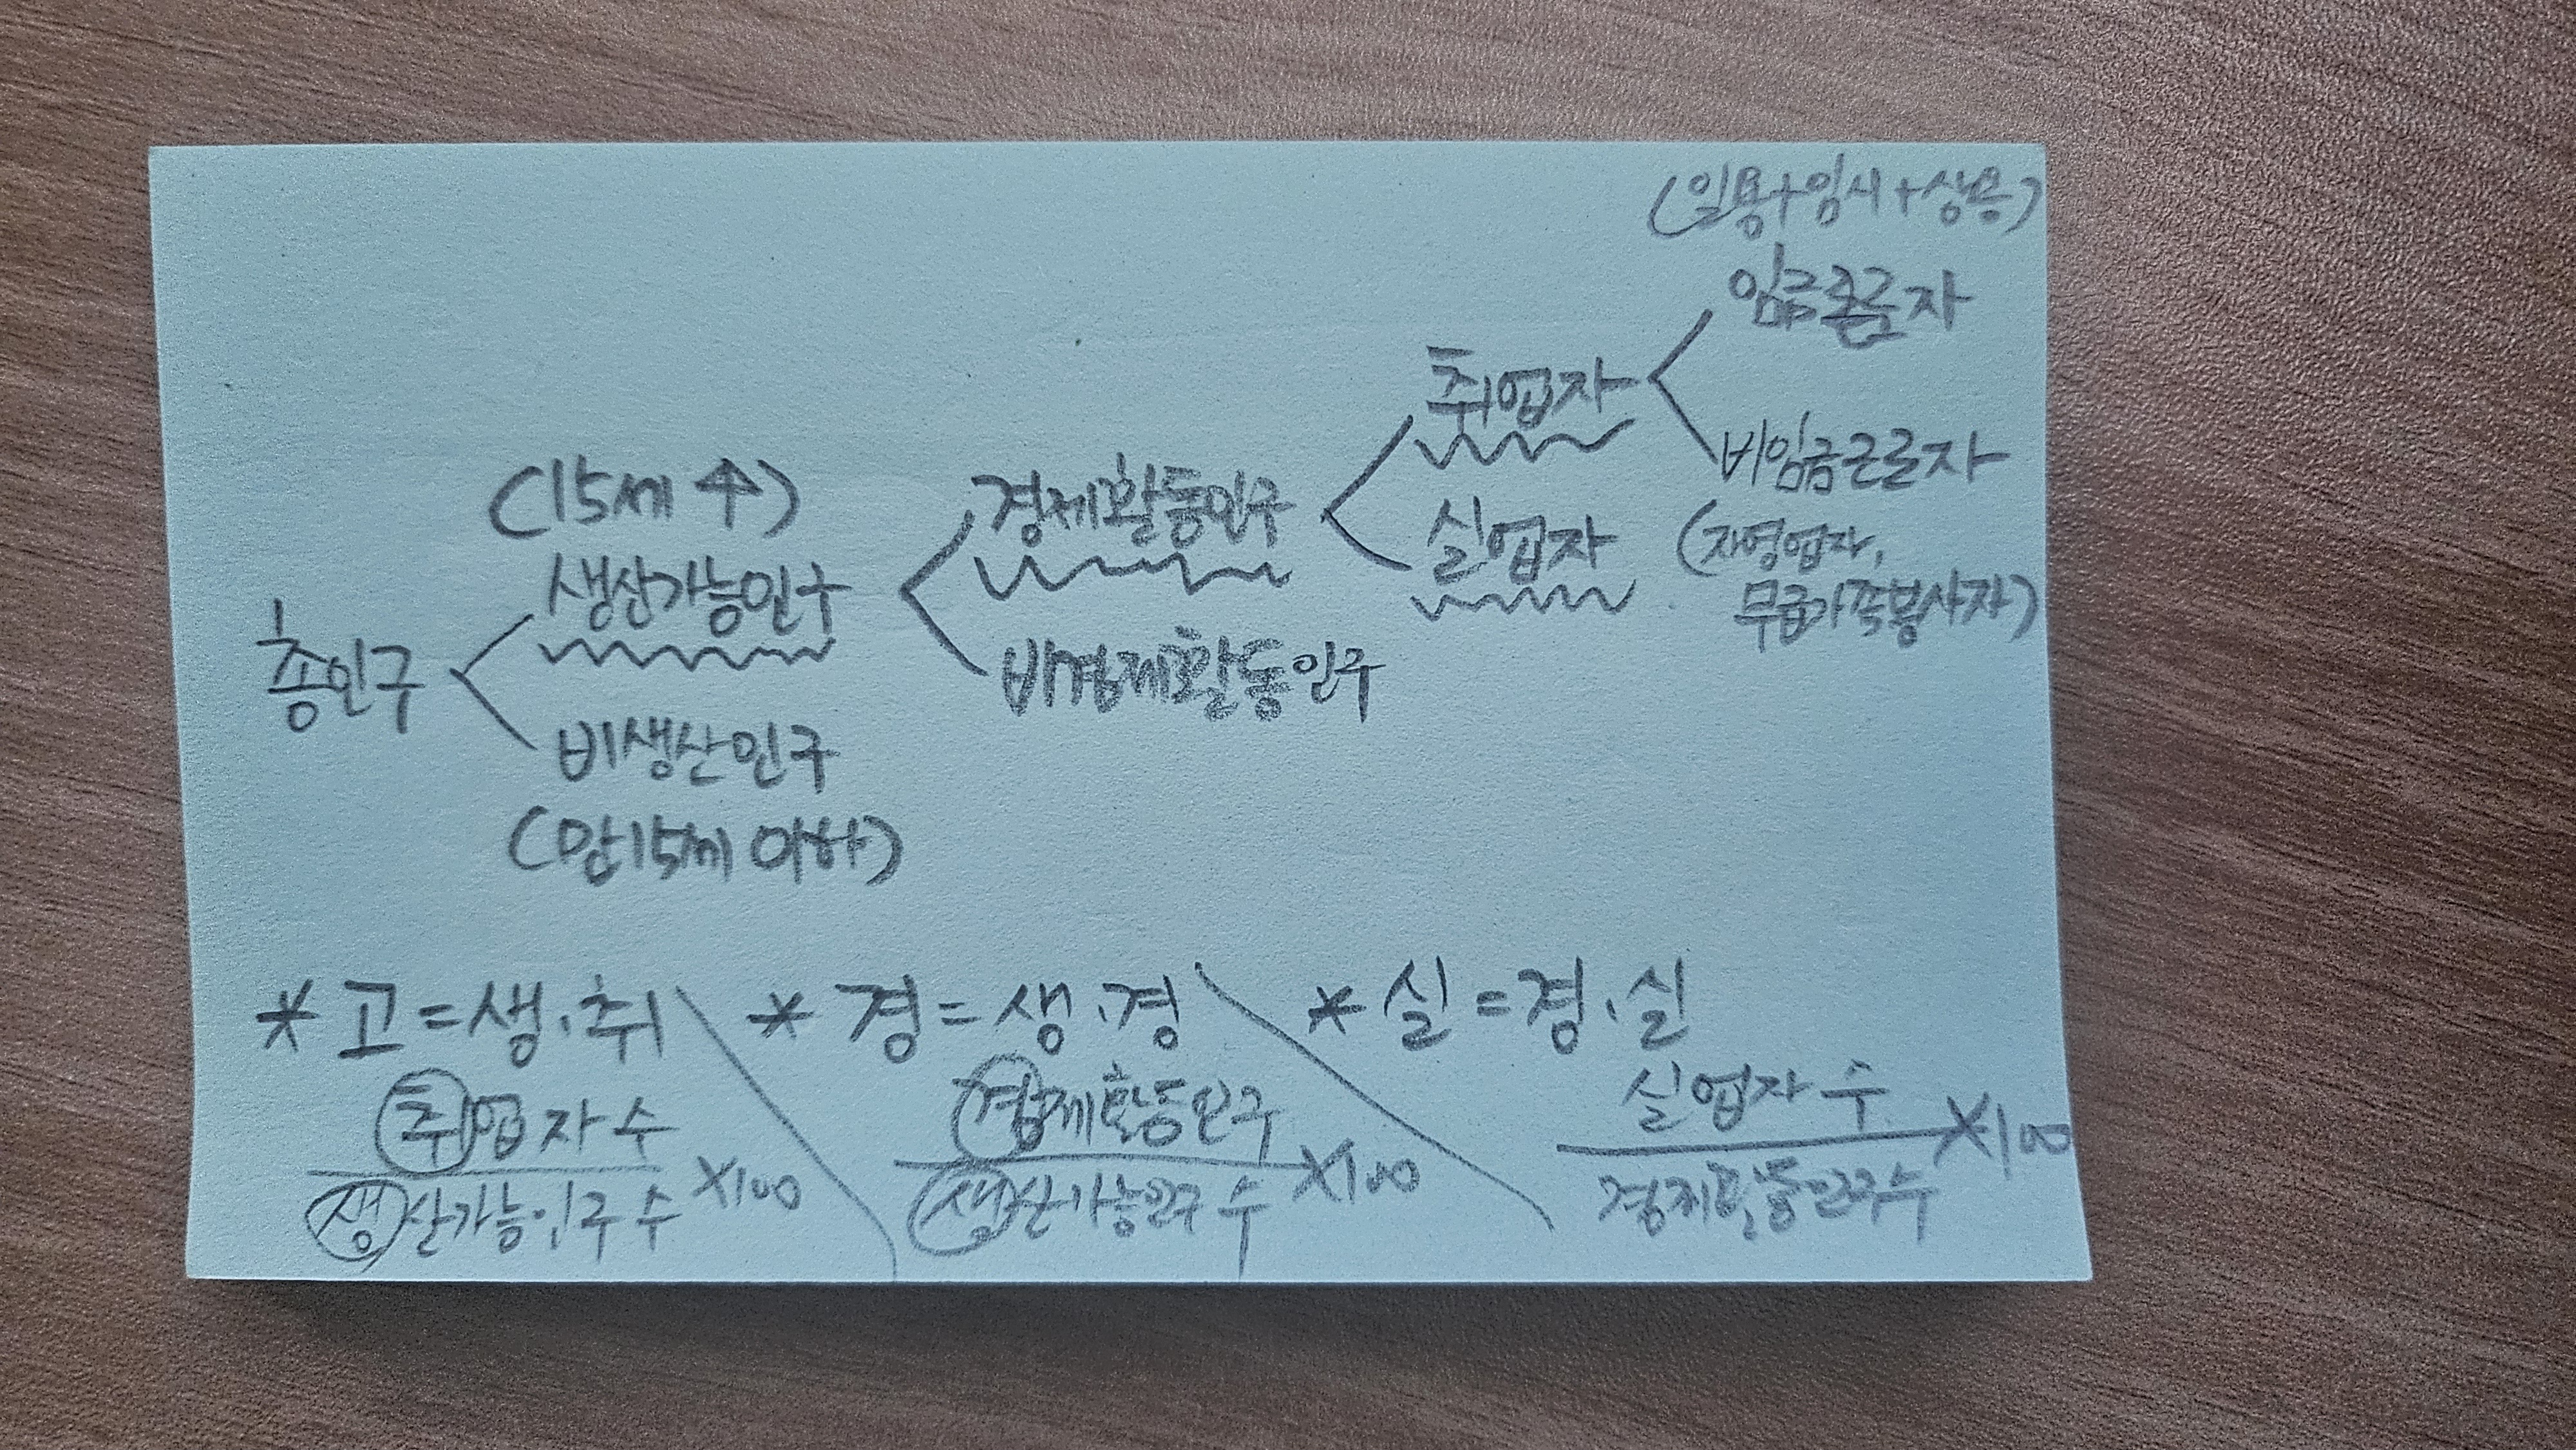 (일용+임시+상용)
임금근로자
취업자
비임금근로자
(15세 ↑)
경제활동인구
실업자
(자영업자,
생산가능인구
무급가족봉사자)
총인구
비경제활동인구
비생산인구
(만15세 이하)
* 고=생.취
* 경=생.경
* 실=경.실
취업자 수
생산가능인구 수
X100
경제활동인구
생산가능인구 수
X100
실업자 수
경제활동인구수
X100